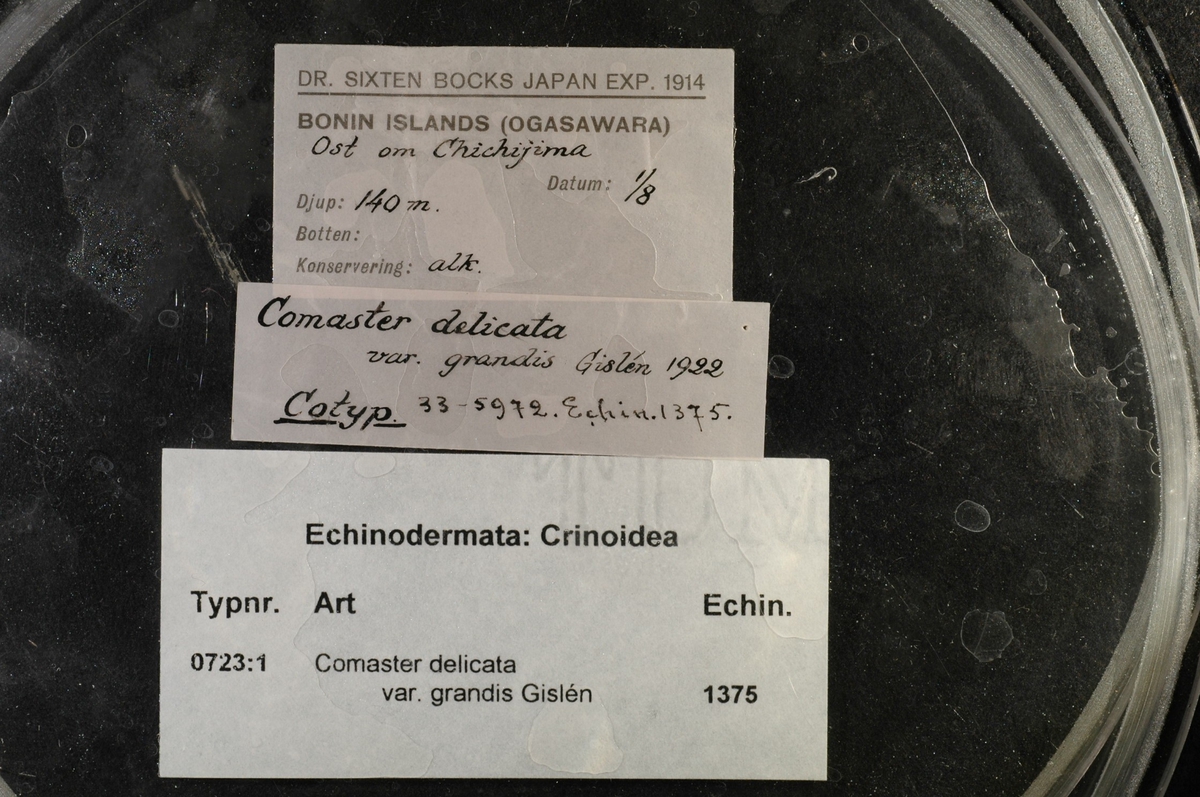 DR. SIXTEN BOCKS JAPAN EXP. 1914
BONIN ISLANDS (OGASAWARA)
Ost om Chichijima
Datum: 1/8
Djup: 140 m.
Botten:
Konservering: alk.
Comaster delicata
var. grandis Gislén 1922
Cotyp. 33-5972. Echin. 1375.
Echinodermata: Crinoidea
Typnr. Art Echin.
0723:1 Comaster delicata
var. grandis Gislén 1375